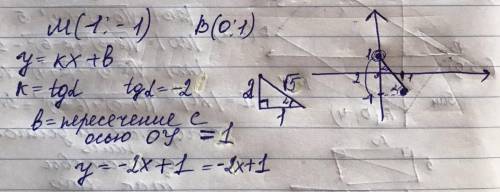 М(1;-1)    В(0;1)
y=кx+в
к=tgα    tgα=-2
в=пересечение с
осью ОУ =1
y=-2x+1=-2x+1
2 √5
1
1
2
-1
1